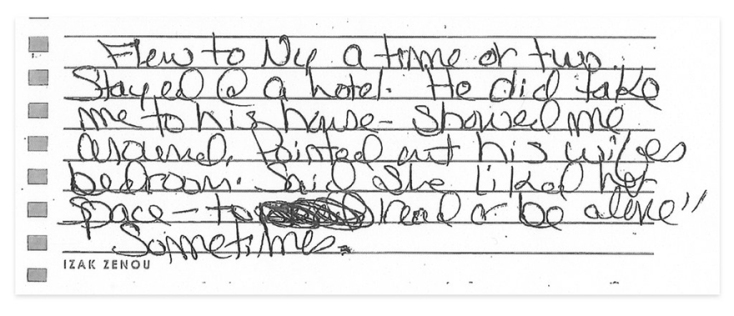 Flew to Ny a time or two.
Stayed @ a hotel. He did take
me to his house - Showed me
around. Pointed out his wifes
bedroom. Said "She liked her
space - to read or be alone"
Sometimes.
IZAK ZENOU